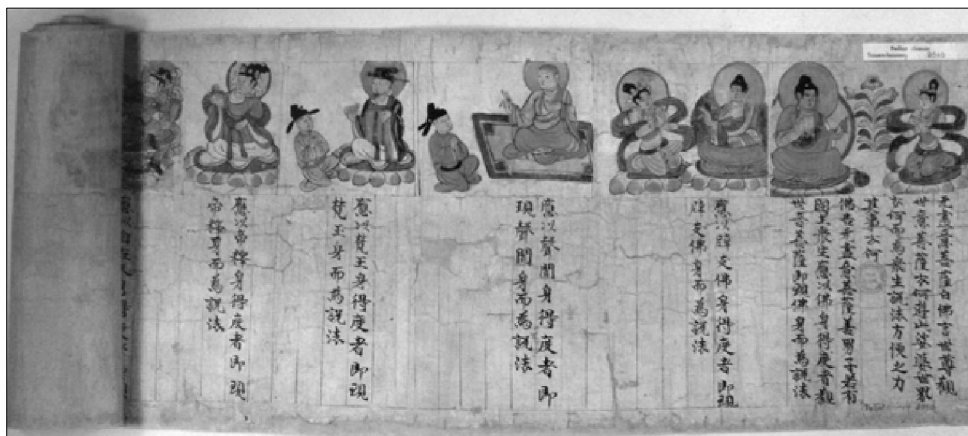 Pelliot chinois
Touen-houang
无盡意菩薩白佛言世尊觀
世音菩薩云何遊此娑婆世界
云何而為衆生說法方便之力
其事云何
佛告无盡意菩薩善男子若有
國土衆生應以佛身得度者觀
世音菩薩即現佛身而為說法
應以辟支佛身得度者即現
辟支佛身而為說法
應以聲聞身得度者即
現聲聞身而為說法
應以梵王身得度者即現
梵王身而為說法
應以帝釋身得度者即現
帝釋身而為說法